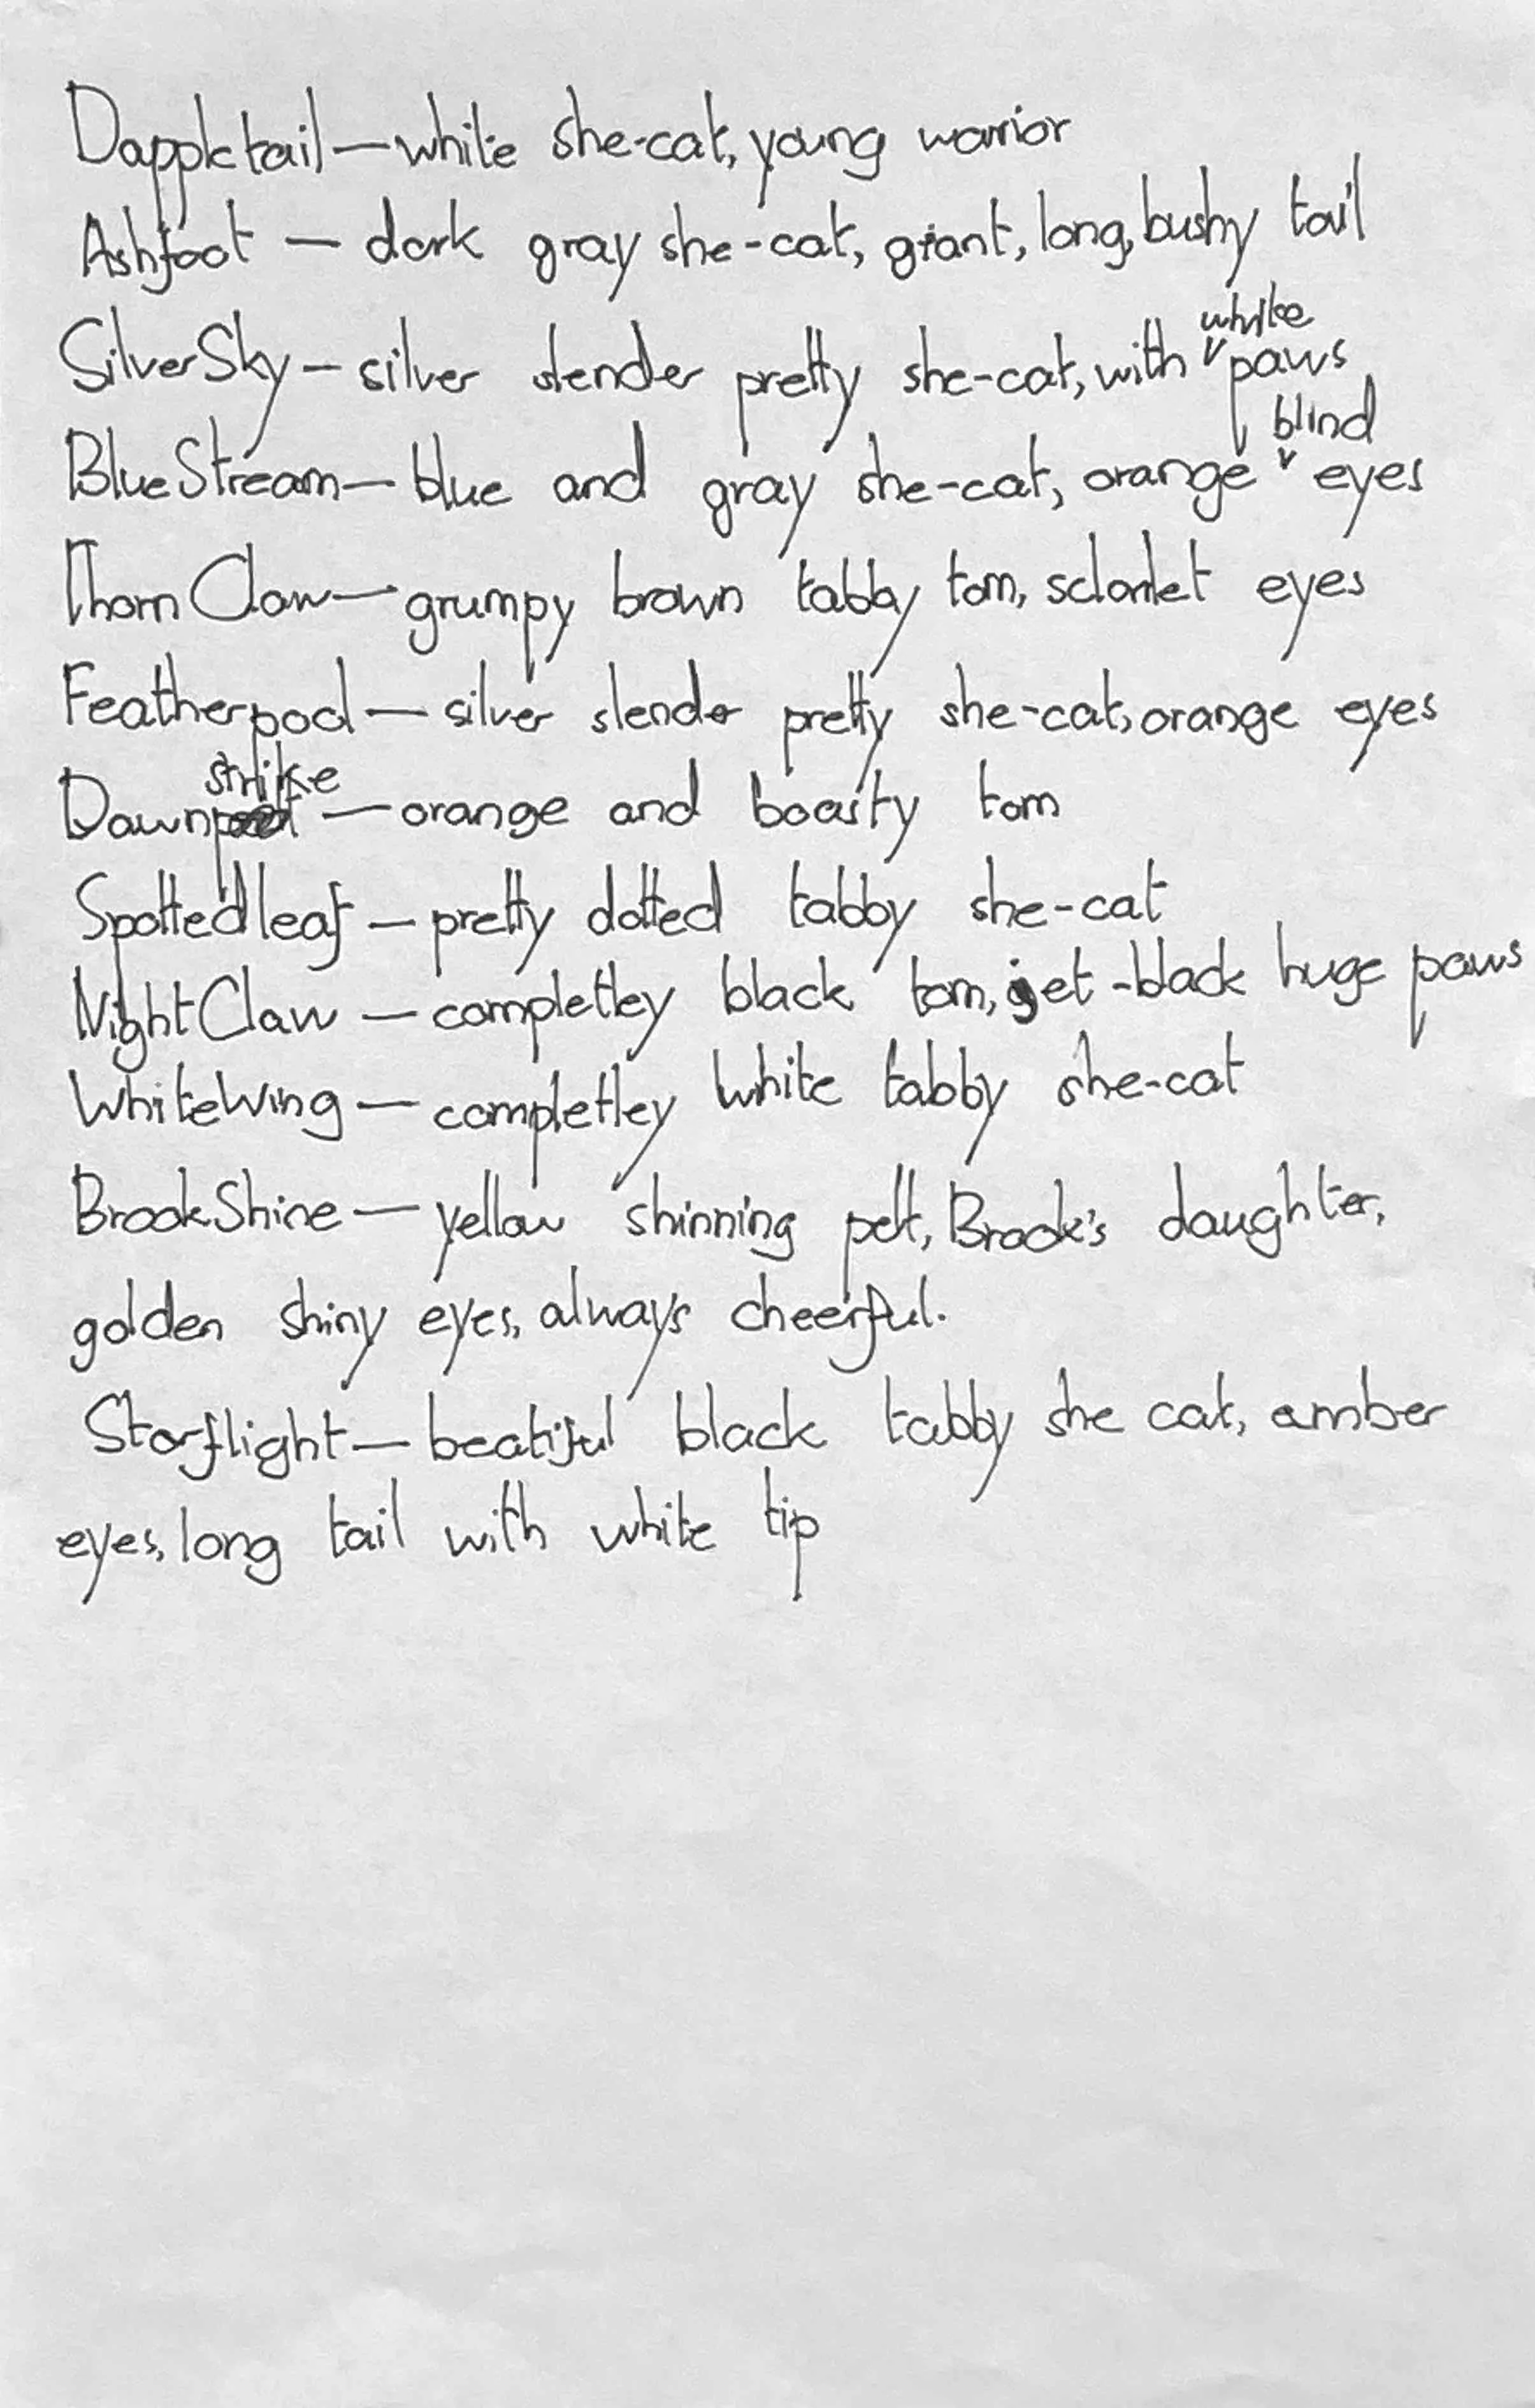 Dappletail — white she-cat, young warrior
Ashfoot — dark gray she-cat, giant, long, bushy tail
SilverSky — silver slender pretty she-cat, with white paws
BlueStream — blue and gray she-cat, orange blind eyes
ThornClaw — grumpy brown tabby tom, eyes
Featherpool — silver slender pretty she-cat, orange eyes
Dawnstrike — orange and boasty tom
Spottedleaf — pretty dotted tabby she-cat
NightClaw — completley black tom, jet-black huge paws
WhiteWing — completley white tabby she-cat
BrookShine — yellow shinning pelt, Brook's daughter,
golden shiny eyes, always cheerful.
Starflight — beatiful black tabby she cat, amber
eyes, long tail with white tip